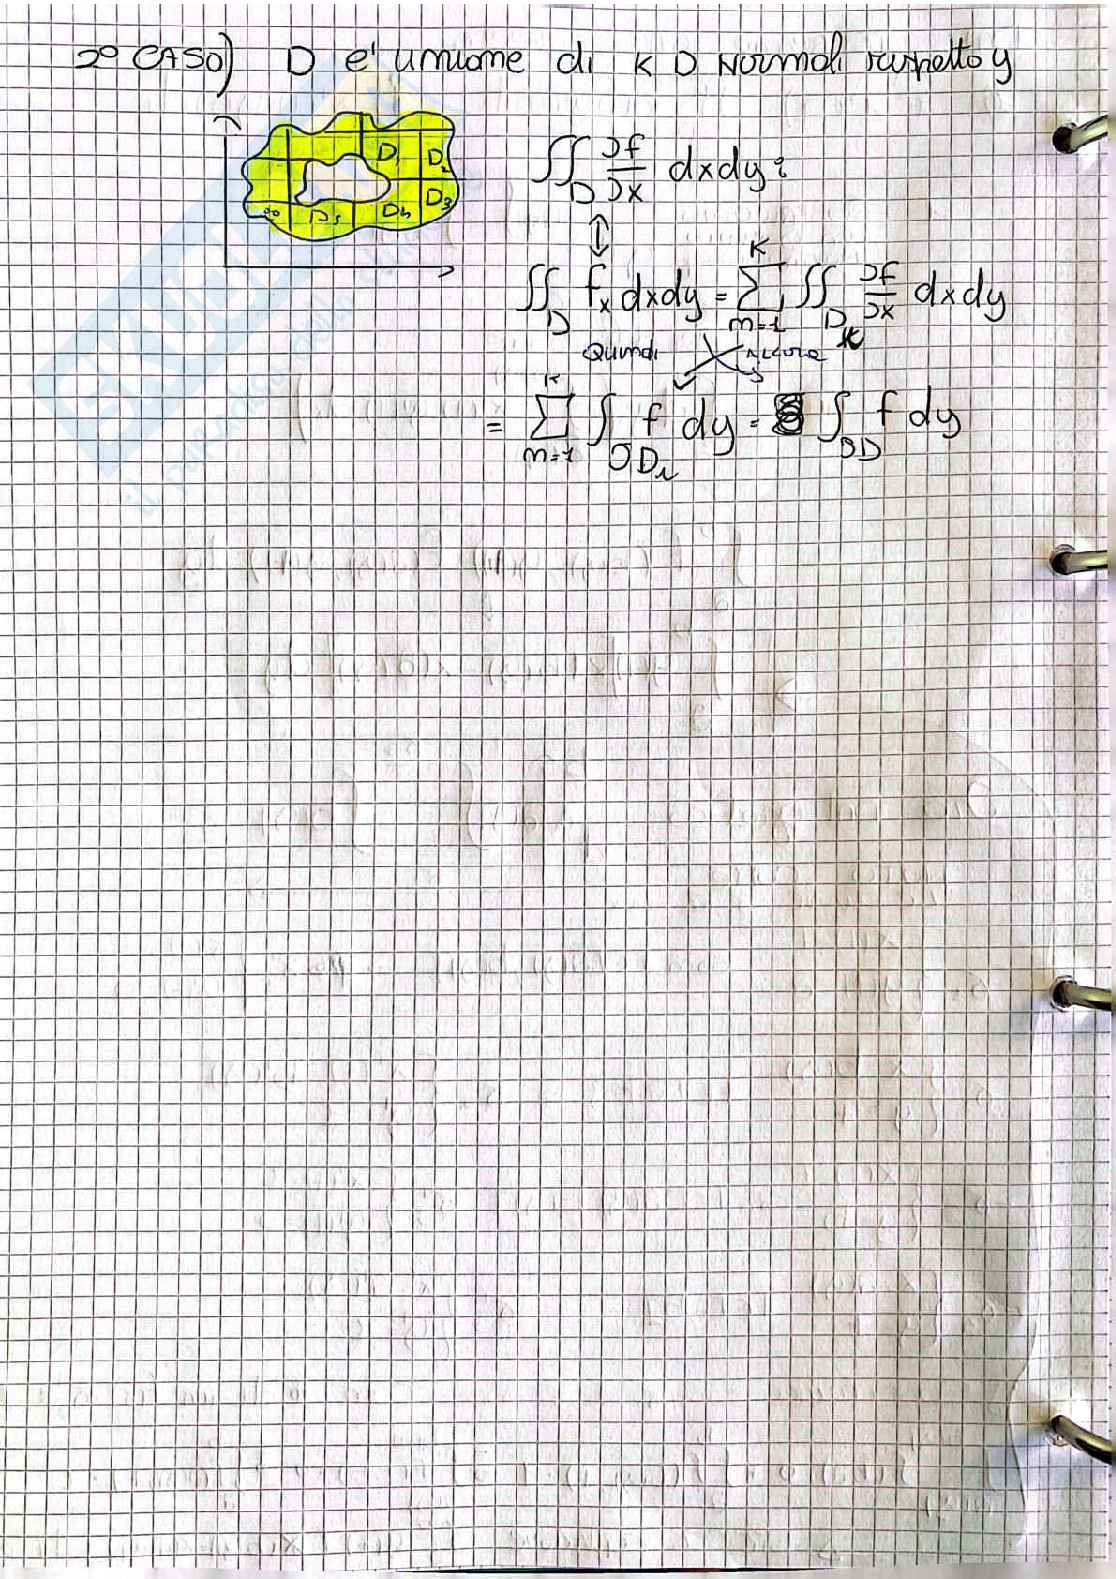 2° CASO) D e' unione di K D Normali rispetto y
D₁ D₂
D₅ D₄ D₃
∬_D ∂f/∂x dxdy:
↕
∬_D fₓ dxdy = Σ_{n=1}^{K} ∬_{D_K} ∂f/∂x dxdy
Quindi
= Σ_{n=1}^{K} ∫_{∂D_i} f dy = ∫_{∂D} f dy